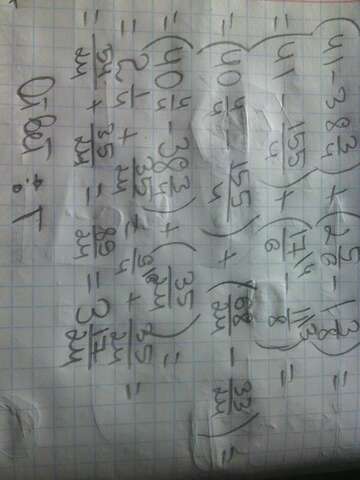 (41 - 38 3/4) + (2 5/6 - 1 3/8) =
= (41 - 155/4) + (17/6 \4 - 11/8 \3) =
= (40 4/4 - 155/4) + (68/24 - 33/24) =
= (40 4/4 - 38 3/4) + (35/24) =
= 2 1/4 + 35/24 = 9/4 \6 + 35/24 =
= 54/24 + 35/24 = 89/24 = 3 17/24
Ответ :